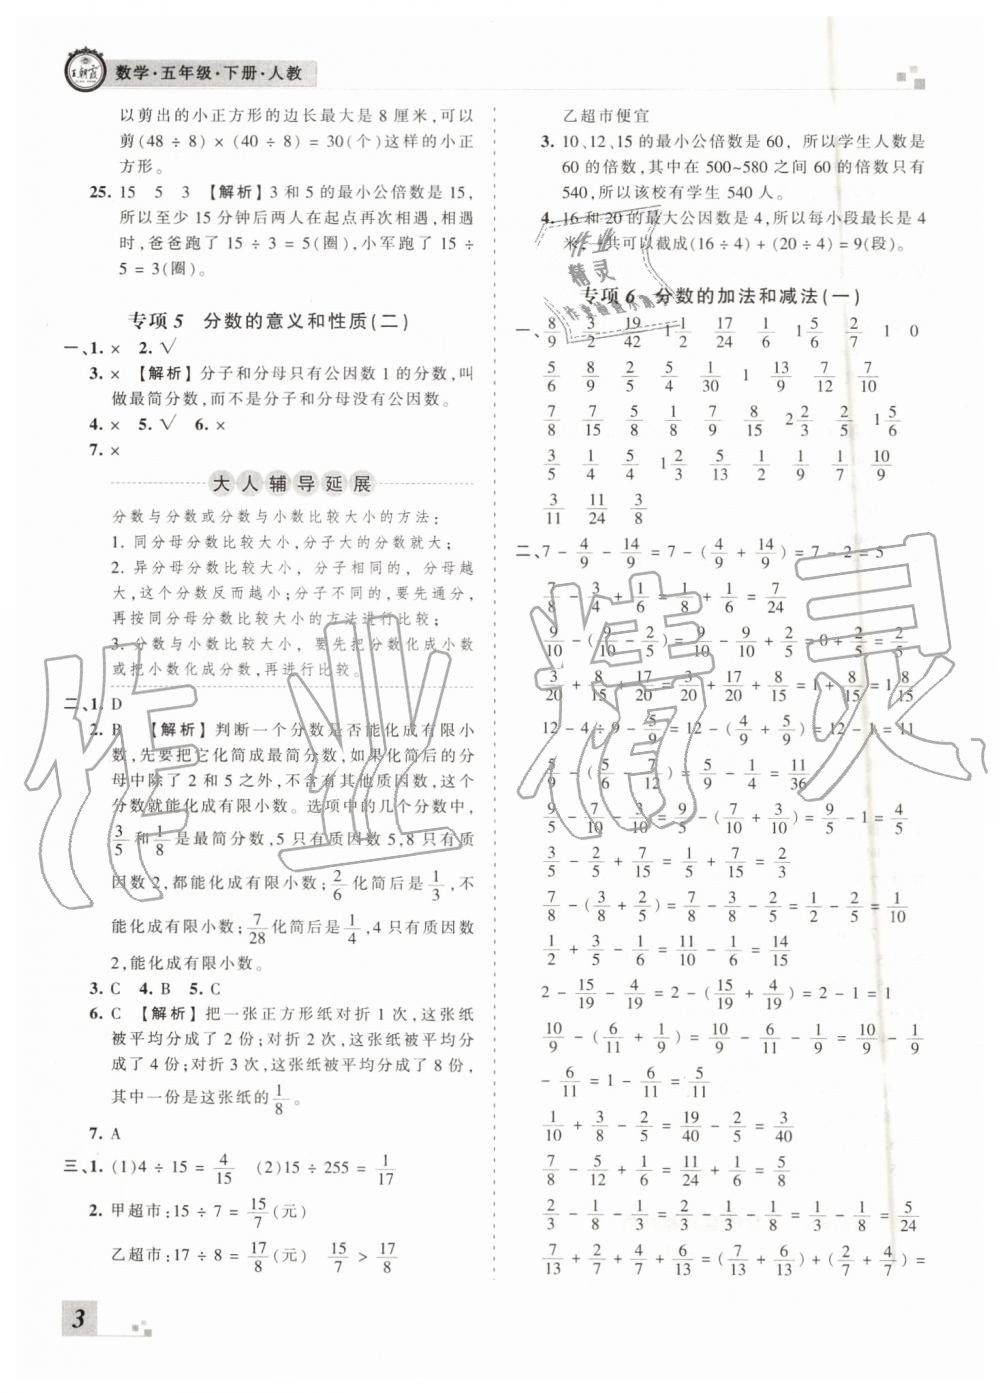 王朝霞
数学·五年级·下册·人教
以剪出的小正方形的边长最大是 8 厘米,可以
剪(48 ÷ 8) × (40 ÷ 8) = 30(个)这样的小正
方形。
25. 15 5 3 【解析】3 和 5 的最小公倍数是 15,
所以至少 15 分钟后两人在起点再次相遇,相遇
时,爸爸跑了 15 ÷ 3 = 5(圈),小军跑了 15 ÷
5 = 3(圈)。
专项 5 分数的意义和性质(二)
一、1. × 2. √
3. × 【解析】分子和分母只有公因数 1 的分数,叫
做最简分数,而不是分子和分母没有公因数。
4. × 5. √ 6. ×
7. ×
大人辅导延展
分数与分数或分数与小数比较大小的方法:
1. 同分母分数比较大小,分子大的分数就大;
2. 异分母分数比较大小,分子相同的,分母越
大,这个分数反而越小;分子不同的,要先通分,
再按同分母分数比较大小的方法进行比较;
3. 分数与小数比较大小,要先把分数化成小数
或把小数化成分数,再进行比较。
二、1. D
2. B 【解析】判断一个分数是否能化成有限小
数,先要把它化简成最简分数,如果化简后的分
母中除了 2 和 5 之外,不含其他质因数,这个
分数就能化成有限小数。选项中的几个分数中,
3/5 和 1/8 是最简分数,5 只有质因数 5,8 只有质
因数 2,都能化成有限小数; 2/6 化简后是 1/3,不
能化成有限小数; 7/28 化简后是 1/4,4 只有质因数
2,能化成有限小数。
3. C 4. B 5. C
6. C 【解析】把一张正方形纸对折 1 次,这张纸
被平均分成了 2 份;对折 2 次,这张纸被平均分
成了 4 份;对折 3 次,这张纸被平均分成了 8 份,
其中一份是这张纸的 1/8。
7. A
三、1. (1)4 ÷ 15 = 4/15 (2)15 ÷ 255 = 1/17
2. 甲超市:15 ÷ 7 = 15/7(元)
乙超市:17 ÷ 8 = 17/8(元) 15/7 > 17/8
3
乙超市便宜
3. 10、12、15 的最小公倍数是 60, 所以学生人数是
60 的倍数,其中在 500~580 之间 60 的倍数只有
540,所以该校有学生 540 人。
4. 16 和 20 的最大公因数是 4,所以每小段最长是 4
米,一共可以截成(16 ÷ 4) + (20 ÷ 4) = 9(段)。
专项 6 分数的加法和减法(一)
一、8/9 3/2 19/42 1 1/2 17/24 1/6 1 5/6 2/7 1 0
5/6 8/9 2/5 5/4 1/30 1 13/9 7/12 7/10
7/8 7/15 5/8 1/8 7/9 8/15 2 2/3 2/5 1 5/6
3/5 1/4 5/4 1 2/3 5/13 1/2 1/9 1 10/9
3/11 11/24 3/8
二、7 - 4/9 - 14/9 = 7 - (4/9 + 14/9) = 7 - 2 = 5
7/8 - 3/4 + 1/6 = 1/8 + 1/6 = 7/24
9/10 - (9/10 - 2/5) = 9/10 - 9/10 + 2/5 = 0 + 2/5 = 2/5
3/20 + 8/15 + 17/20 = 3/20 + 17/20 + 8/15 = 1 + 8/15 = 1 8/15
12 - 4 ÷ 9 - 5/9 = 12 - (4/9 + 5/9) = 12 - 1 = 11
5/9 - (5/6 - 7/12) = 5/9 - 1/4 = 11/36
9/5 - 7/10 - 3/10 = 9/5 - (7/10 + 3/10) = 9/5 - 1 = 4/5
3/5 - 2/5 + 7/15 = 1/5 + 7/15 = 2/3
7/8 - (3/8 + 2/5) = 7/8 - 3/8 - 2/5 = 1/2 - 2/5 = 1/10
1/2 + 3/5 - 1/6 = 11/10 - 1/6 = 14/15
2 - 15/19 - 4/19 = 2 - (15/19 + 4/19) = 2 - 1 = 1
10/9 - (6/11 + 1/9) = 10/9 - 6/11 - 1/9 = 10/9 - 1/9
- 6/11 = 1 - 6/11 = 5/11
1/10 + 3/8 - 2/5 = 19/40 - 2/5 = 3/40
7/8 - 5/12 + 1/6 = 11/24 + 1/6 = 5/8
2/3 - 1/8 - 1/3 = 2/3 - 1/3 - 1/8 = 1/3 - 1/8 = 5/24
7/13 + 2/7 + 6/13 + 4/7 = (7/13 + 6/13) + (2/7 + 4/7) =
作业精灵
作业精灵